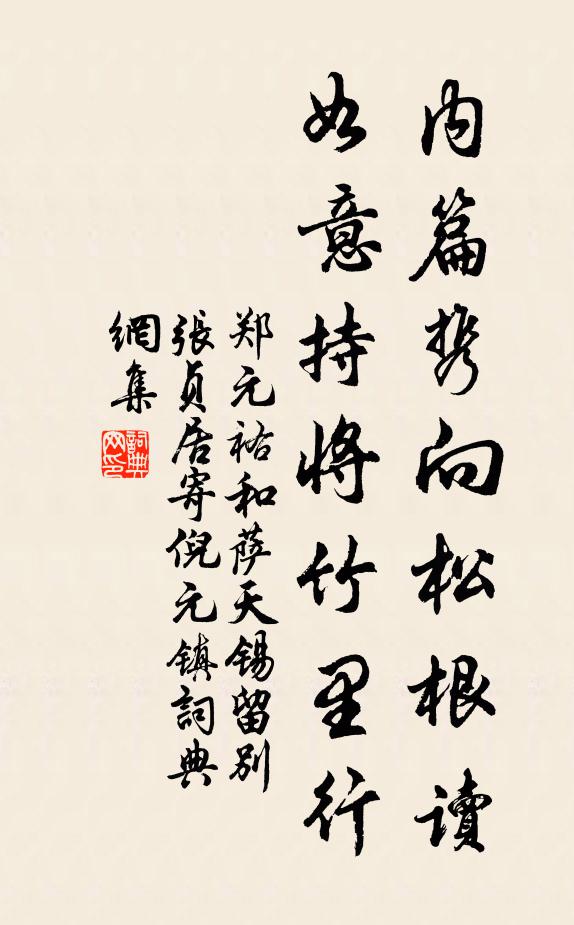 内篇携向松根读
如意持将竹里行
郑元祐和萨天锡留别
張貞居寄倪元镇詞典
網集
詞典
网印